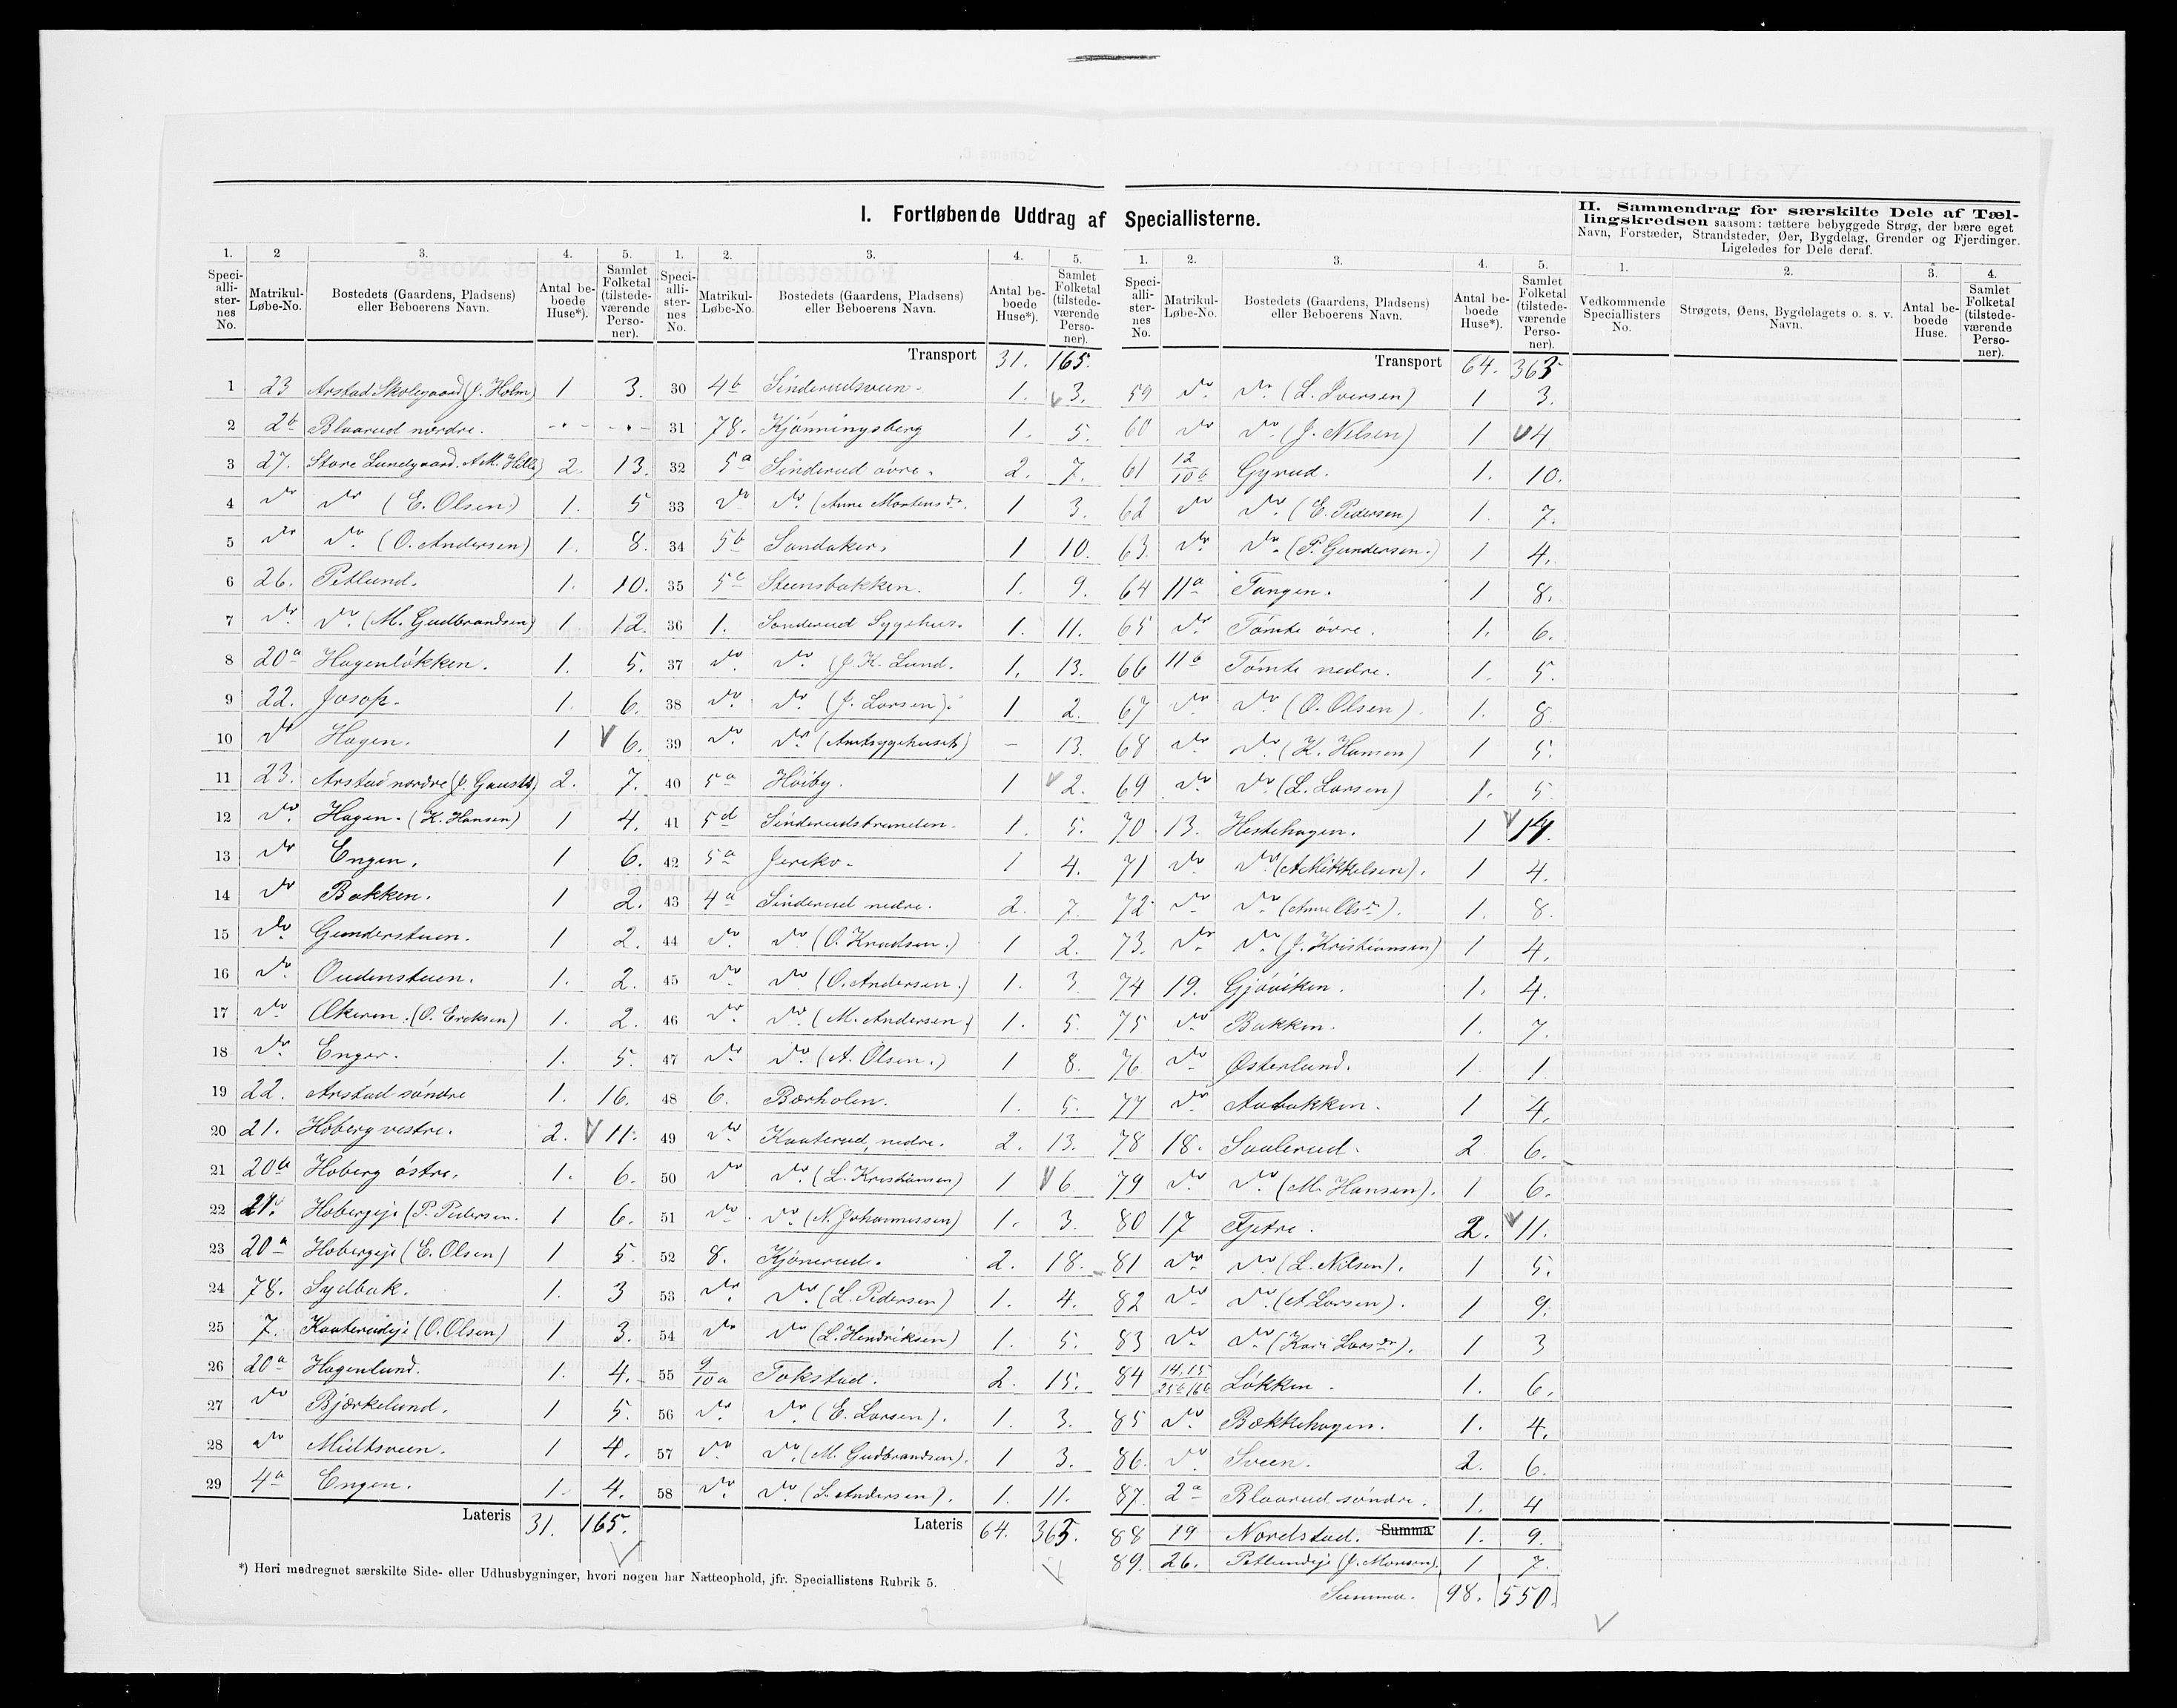 I. Fortløbende Uddrag af Speciallisterne.
II. Sammendrag for særskilte Dele af Tæl-
lingskredsen saasom: tættere bebyggede Strøg, der bære eget
Navn, Forstæder, Strandsteder, Øer, Bygdelag, Grender og Fjerdinger.
Ligeledes for Dele deraf.
1. 2 3. 4. 5.
Speci-alli-ster-nes No. Matrikul-Løbe-No. Bostedets (Gaardens, Pladsens) eller Beboerens Navn. Antal be-boede Huse*). Samlet Folketal (tilstede-værende Perso-ner).
1 23 Arstad Skolegaard (J. Holm) 1 3.
2 2b Blaarud nordre. - - - -
3 27. Store Lundgaard. A.M. Hille) 2. 13.
4 do do (E. Olsen) 1. 5
5 do do (O. Andersen) 1. 8.
6 26. Petlund. 1. 10.
7 do do (M. Gudbrandsen) 1. 12.
8 20a Hagenløkken. 1. 5.
9 22. Josop. 1. 6.
10 do Hagen. 1 6.
11 23. Arstad nordre (J. Gaustad) 2. 7.
12 do Hagen. (K. Hansen) 1 4.
13 do Engen. 1 6.
14 do Bakken. 1 2.
15 do Gunderstuen. 1 2.
16 do Oudenstuen. 1. 2.
17 do Økeren. (O. Ereksen) 1. 2.
18 do Enger. 1. 5.
19 22. Arstad søndre 1. 16.
20 21. Hoberg vestre. 2. 11.
21 20a Hoberg østre. 1. 6.
22 21. Hobergeje (P. Pedersen. 1 6.
23 20a Hobergeje (E. Olsen) 1 5.
24 78. Sydbak. 1. 3
25 7. Kaaterudeje (O. Olsen) 1 3.
26 20a Hagenlund. 1. 4.
27 do Bjørkelund. 1 5.
28 do Mieltsveen. 1 4.
29 4a Engen. 1. 4.
Lateris 31. 165.
*) Heri medregnet særskilte Side- eller Udhusbygninger, hvori nogen har Natteophold, jfr. Speciallistens Rubrik 5.
1. 2. 3. 4. 5.
Speci-alli-ster-nes No. Matrikul-Løbe-No. Bostedets (Gaardens, Pladsens) eller Beboerens Navn. Antal be-boede Huse*). Samlet Folketal (tilstede-værende Perso-ner).
Transport 31. 165.
30 4b Sinderudsveen. 1. 3.
31 78. Kjønningsberg 1. 5.
32 5a Sinderud øvre. 2. 7.
33 do do (Anne Mortensdr. 1 3.
34 5b Sandaker. 1 10.
35 5c Steensbakken. 1. 9.
36 1. Sanderud Sygehus. 1. 11.
37 do do (J. K. Lund. 1. 13.
38 do do (J. Larsen). 1 2.
39 do do (Amtssygehuset) - 13.
40 5a Høiby. 1 2.
41 5d Sinderudsbraaten. 1. 5.
42 5a Jeriko. 1 4.
43 4a Sinderud nedre. 2. 7.
44 do do (O. Knudsen.) 1 2.
45 do do (O. Andersen.) 1. 3
46 do do (M. Andersen) 1. 5.
47 do do (A. Olsen.) 1 8.
48 6. Bærholen. 1. 5.
49 do Kaaterud, nedre. 2. 13.
50 do do (L. Kristiansen) 1 6
51 do do (N. Johannessen) 1. 3.
52 8. Kjønerud. 2. 18.
53 do do (L. Pedersen) 1. 4.
54 do do (L. Hendriksen) 1. 5.
55 9/10a Tokstad. 2. 15.
56 do do (E. Larsen). 1. 3.
57 do do (M. Gudbrandsen). 1 3.
58 do do (L. Andersen). 1. 11.
Lateris 64. 363.
1. 2. 3. 4. 5.
Speci-alli-ster-nes No. Matrikul-Løbe-No. Bostedets (Gaardens, Pladsens) eller Beboerens Navn. Antal be-boede Huse*). Samlet Folketal (tilstede-værende Perso-ner).
Transport 64. 363
59 do do (L. Iversen) 1 3.
60 do do (J. Nilsen) 1 4
61 12/10b Gyrud. 1. 10.
62 do do (E. Pedersen) 1. 7.
63. do do (P. Gundersen.) 1 4.
64 11a Tangen. 1 8.
65 do Tømte øvre. 1. 6.
66 11b Tømte nedre. 1. 5.
67 do do (O. Olsen) 1. 8
68 do do (K. Hansen) 1 5.
69 do do (L. Larsen) 1. 5
70 13. Hestehagen. 1 14.
71 do do (A Mikkelsen). 1 4.
72 do do (Anne Olsdr). 1. 8.
73. do do (J. Kristiansen) 1 4.
74 19. Gjøviken. 1. 4.
75 do Bakken. 1. 7.
76 do Østerlund. 1. 1
77 do Aabakken. 1 4.
78 18. Saulerud. 2 6.
79 do do (M. Hansen). 1 6.
80 17 Fjetre. 2. 11.
81 do do (L. Nilsen). 1 5.
82 do do (A Larsen). 1 9.
83 do do (Kari Larsdr). 1 3
84 14.15/25b 16b Løkken. 1. 6.
85 do Bækkehagen. 1. 4.
86. do Sveen. 2. 6.
87. 2a Blaarud søndre. 1. 4
88 19 Nordstad. Summa 1. 9.
89. 26. Petlundeje (J. Monsen). 1 7.
Summa. 98. 550.
1. 2. 3. 4.
Vedkommende Speciallisters No. Strøgets, Øens, Bygdelagets o. s. v. Navn. Antal be-boede Huse. Samlet Folketal (tilstede-værende Perso-ner).